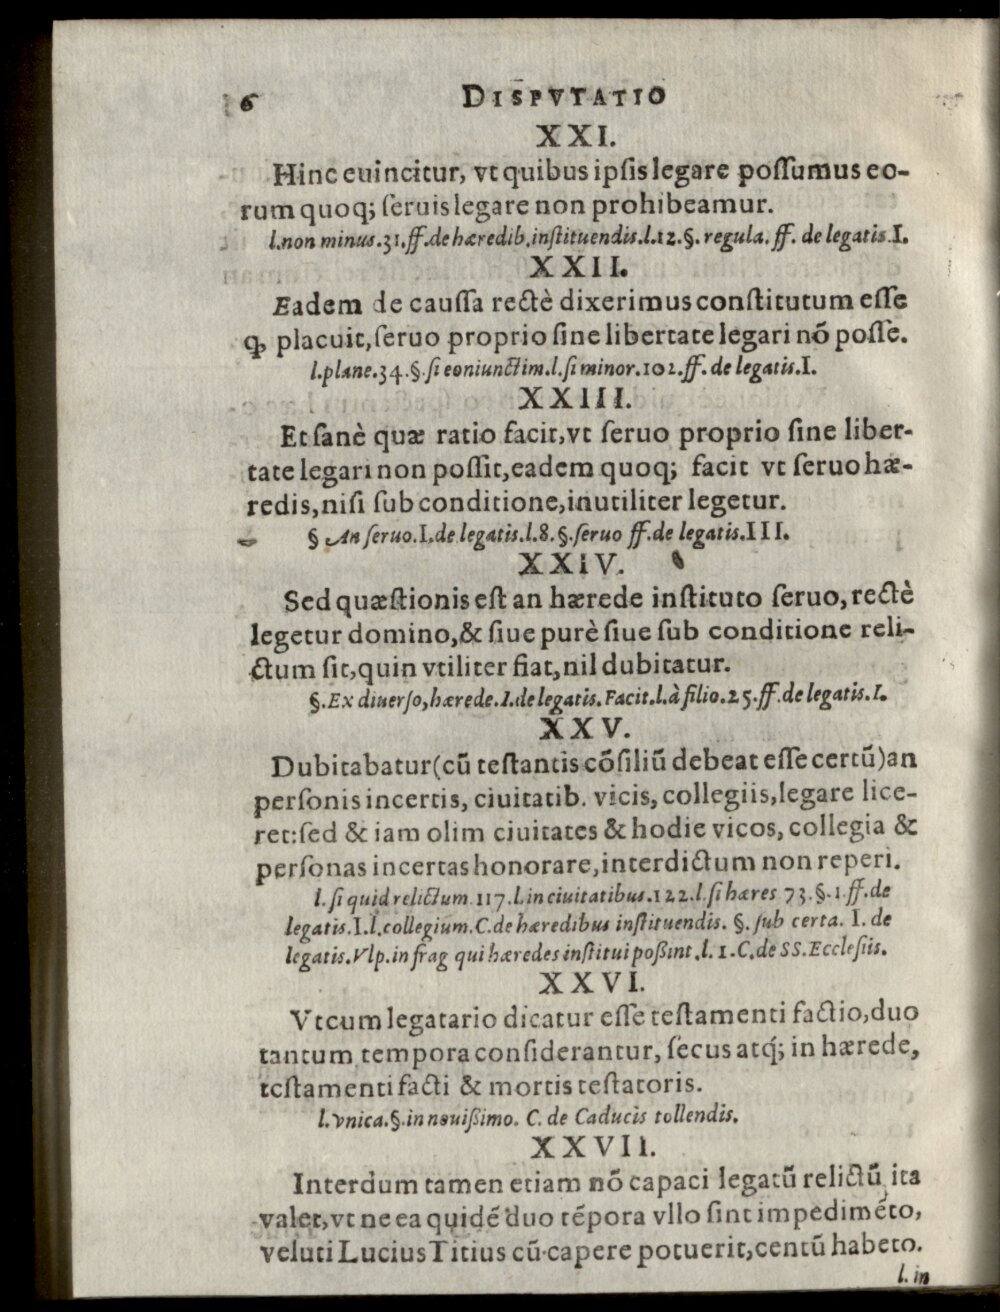 6 DISPVTATIO
XXI.
Hinc euincitur, vt quibus ipsis legare possumus eo-
rum quoq; seruis legare non prohibeamur.
l.non minus.31.ff.de hæredib.instituendis.l.12.§. regula. ff. de legatis.I.
XXII.
Eadem de caussa rectè dixerimus constitutum esse
q, placuit, seruo proprio sine libertate legari nō posse.
l.plane.34.§.si coniunctim.l.si minor.102.ff. de legatis.I.
XXIII.
Et sanè quæ ratio facit, vt seruo proprio sine liber-
tate legari non possit, eadem quoq; facit vt seruo hæ-
redis, nisi sub conditione, inutiliter legetur.
§ An seruo.I.de legatis.l.8.§.seruo ff.de legatis.III.
XXIV.
Sed quæstionis est an hærede instituto seruo, rectè
legetur domino, & siue purè siue sub conditione reli-
ctum sit, quin vtiliter fiat, nil dubitatur.
§.Ex diuerso, hærede.I.de legatis.Facit.l.à filio.25.ff.de legatis.I.
XXV.
Dubitabatur (cū testantis cōsiliū debeat esse certū) an
personis incertis, ciuitatib. vicis, collegiis, legare lice-
ret: sed & iam olim ciuitates & hodie vicos, collegia &
personas incertas honorare, interdictum non reperi.
l. si quid relictum 117.l.in ciuitatibus.122.l.si hæres 73.§.1.ff.de
legatis.I.l.collegium.C.de hæredibus instituendis. §. sub certa. I. de
legatis.Vlp.in frag qui hæredes institui poßint.l.1.C.de SS.Ecclesiis.
XXVI.
Vt cum legatario dicatur esse testamenti factio, duo
tantum tempora considerantur, secus atq; in hærede,
testamenti facti & mortis testatoris.
l.vnica.§.in nouißimo. C. de Caducis tollendis.
XXVII.
Interdum tamen etiam nō capaci legatū relictū, ita
valet, vt ne ea quidē duo tēpora vllo sint impedimēto,
veluti Lucius Titius cū capere potuerit, centū habeto.
l. in